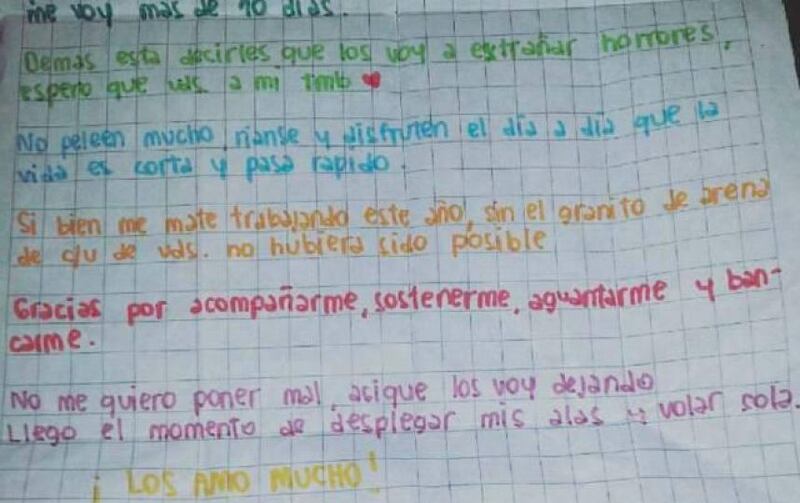 me voy mas de 10 dias.
Demas esta decirles que los voy a extrañar horrores,
espero que uds. a mi tmb ❤
No peleen mucho, rianse y disfruten el día a día que la
vida es corta y pasa rapido.
Si bien me mate trabajando este año, sin el granito de arena
de c/u de uds. no hubiera sido posible
Gracias por acompañarme, sostenerme, aguantarme y ban-
carme.
No me quiero poner mal, asique los voy dejando
Llego el momento de desplegar mis alas y volar sola.
¡ LOS AMO MUCHO!